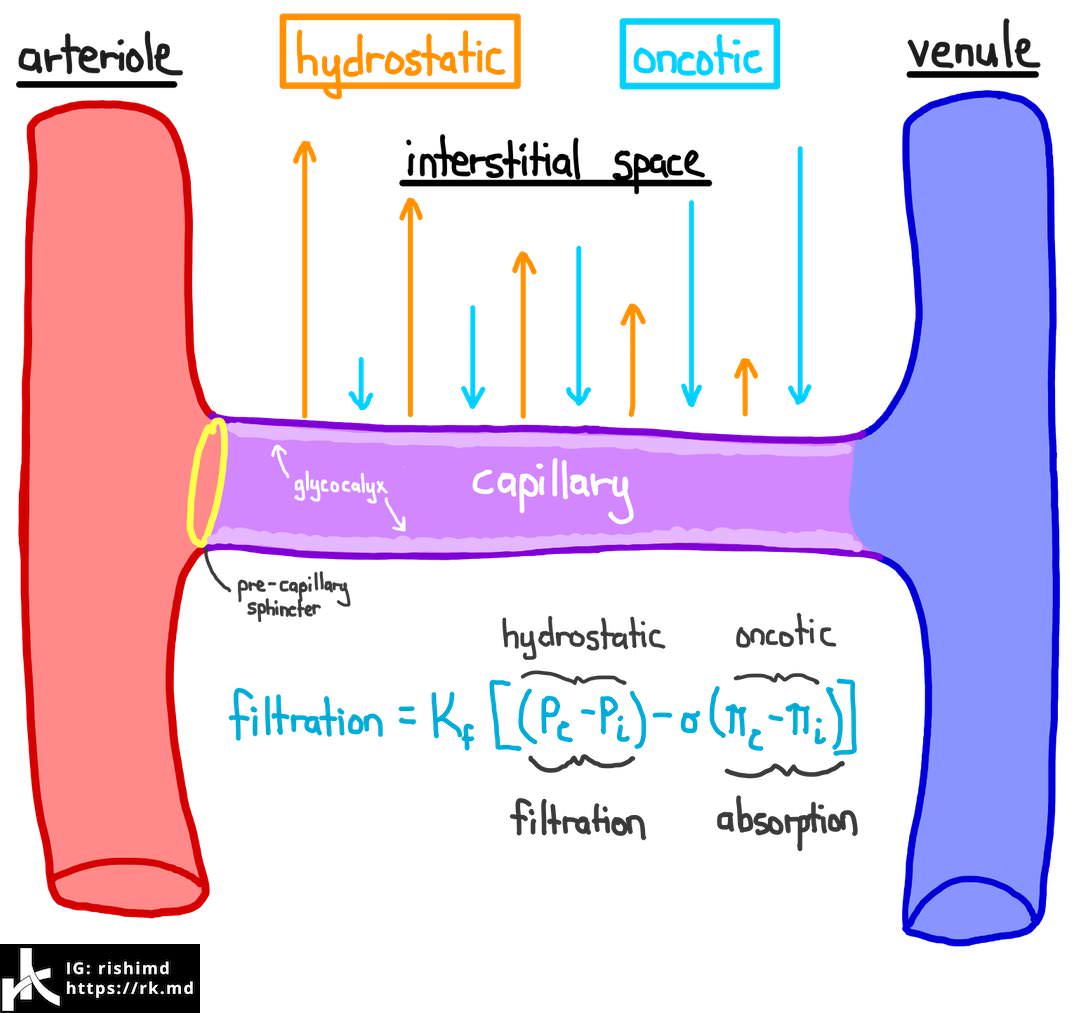 arteriole
hydrostatic
oncotic
venule
interstitial space
glycocalyx
capillary
pre-capillary
sphincter
hydrostatic
oncotic
filtration = Kf [(Pc - Pi) - σ (πc - πi)]
filtration
absorption
rk
IG: rishimd
https://rk.md